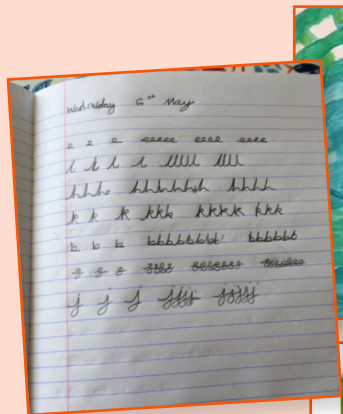 Wednesday 6th May
e e e eeeee eeee eeee
l l l l lllll llll
h h h hhhhhh hhhh
k k k kkk kkkk kkk
b b b bbbbbbb bbbbbb
s s s ssss sssssss ssssss
j j j jjjj jjjjj